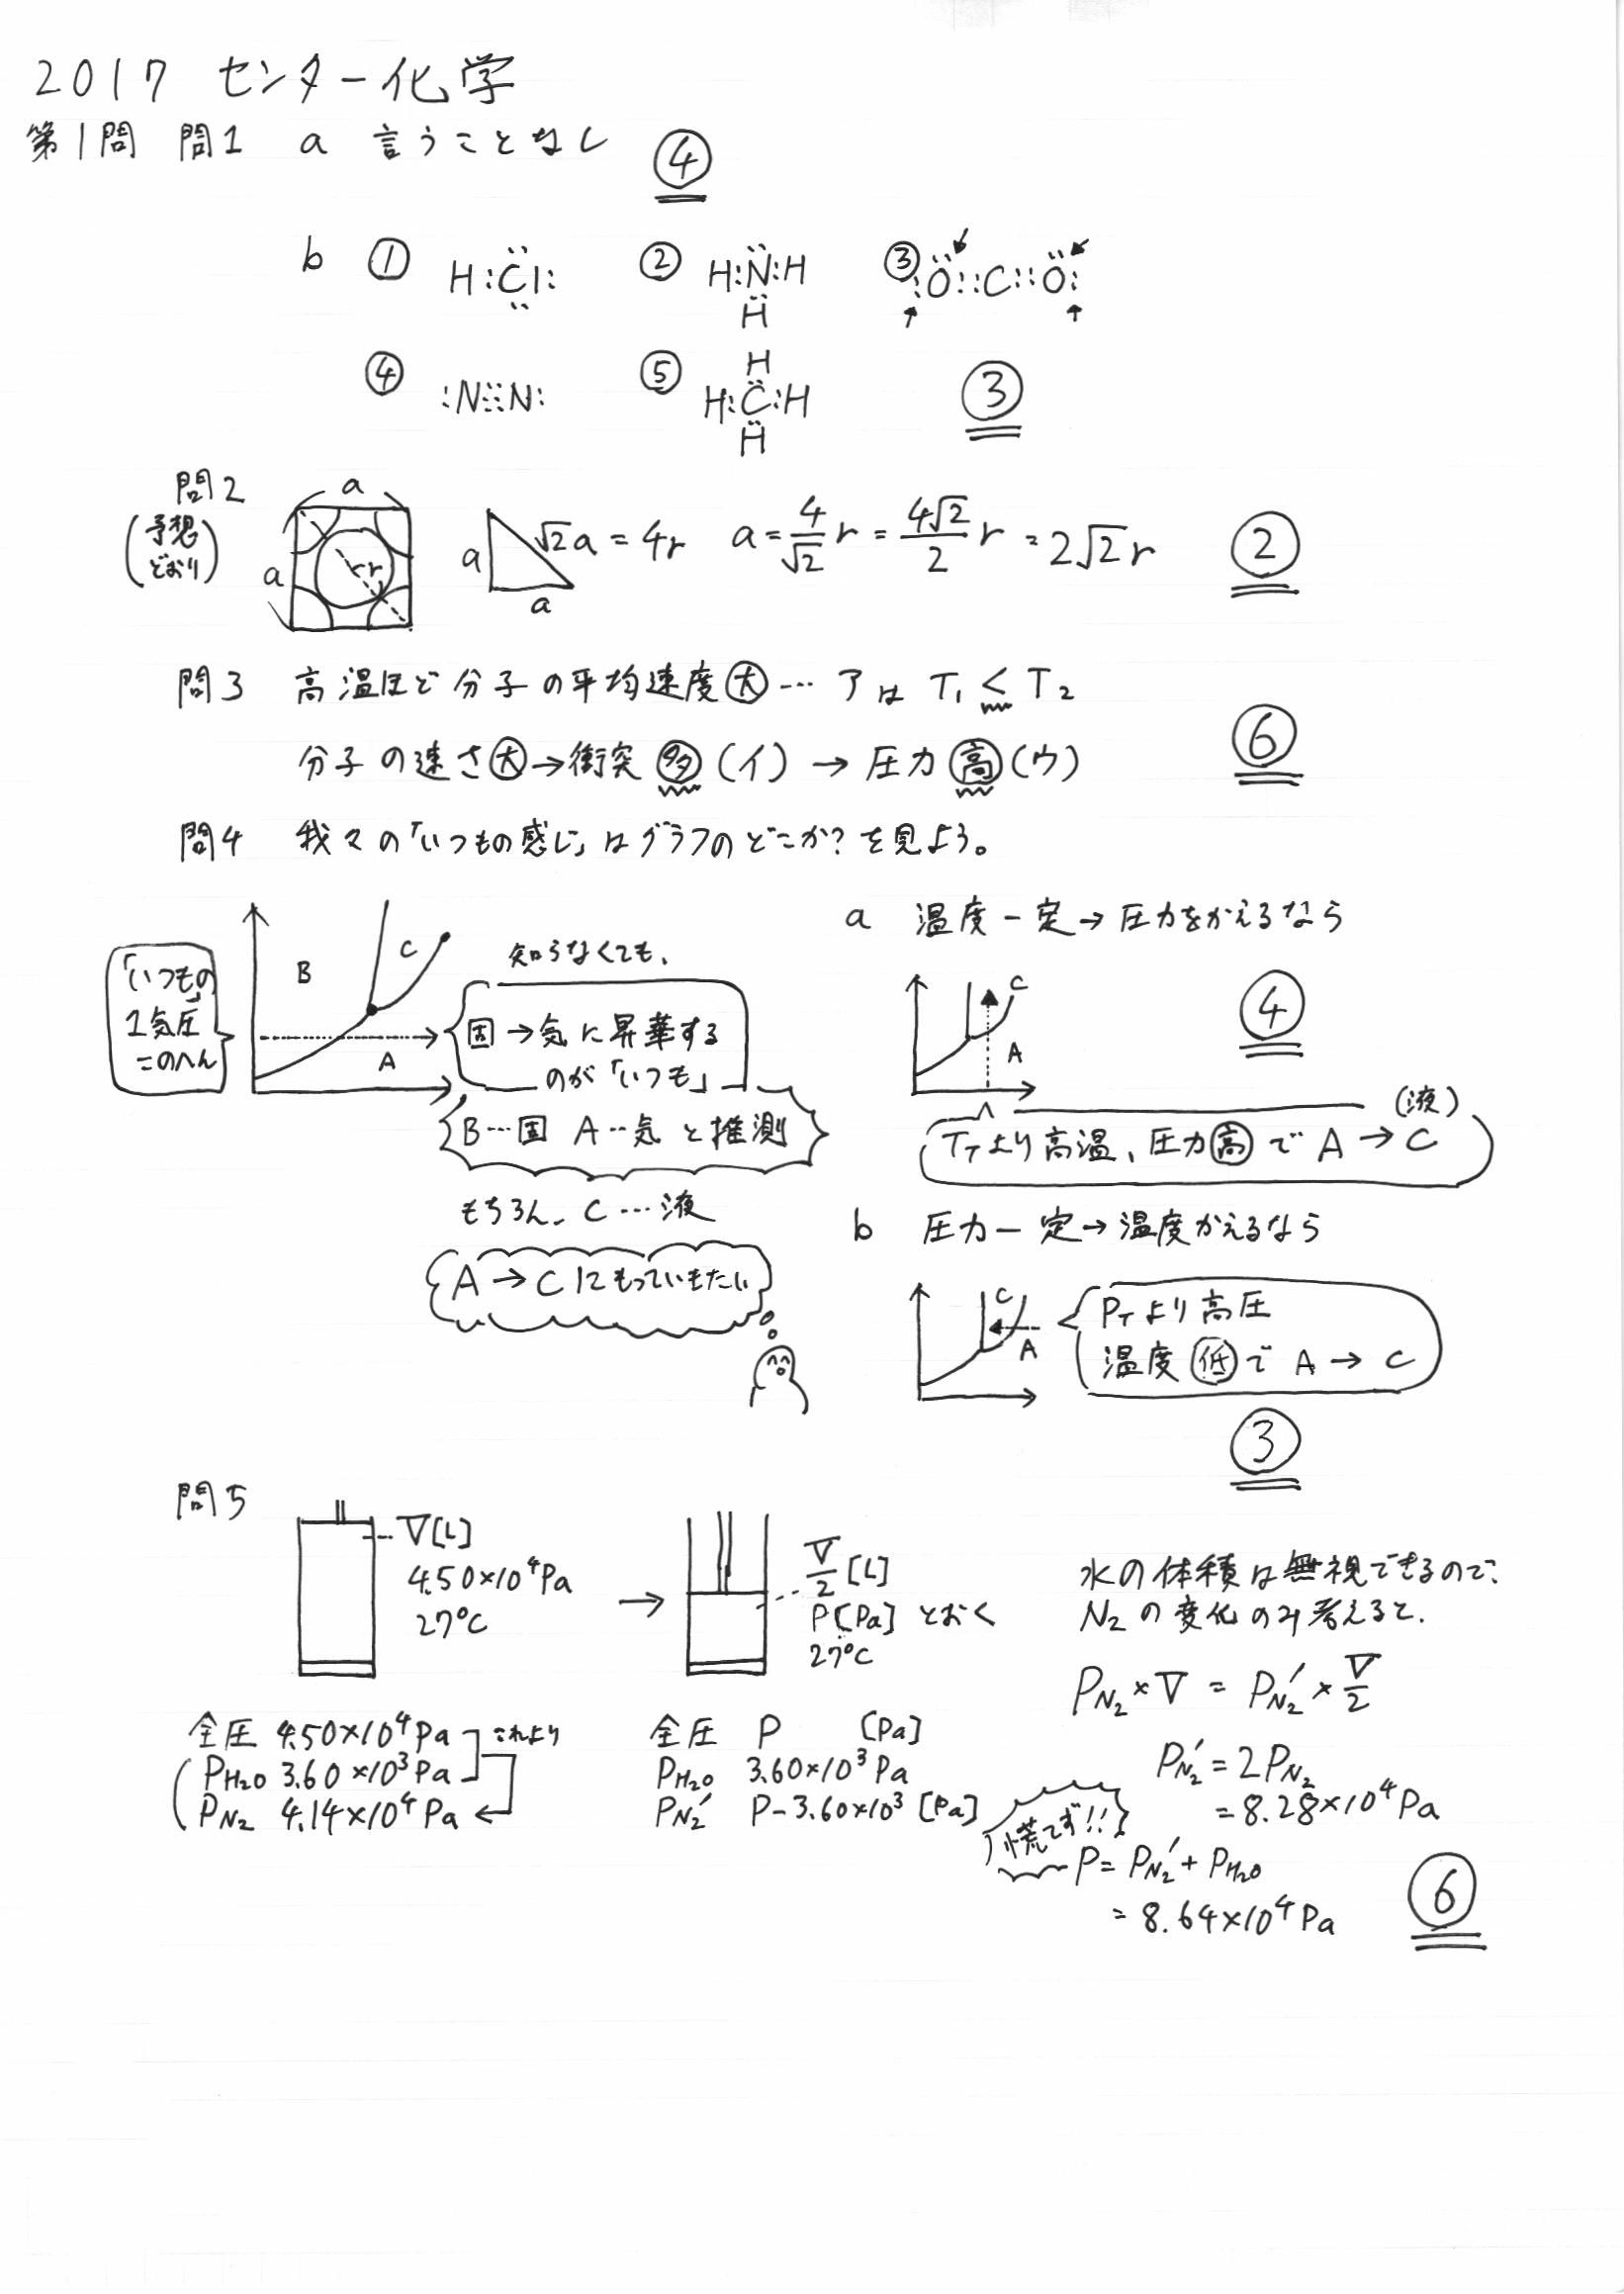 2017 センター化学
第1問 問1 a 言うことなし ④
b ① H:Cl: ② H:N:H H ③ :O::C::O:
④ :N⋮⋮N: ⑤ H H:C:H H ③
問2 (予想どおり) a a r a a √2a = 4r a = 4/√2 r = 4√2/2 r = 2√2 r ②
問3 高温ほど分子の平均速度大… アは T₁ < T₂
分子の速さ大→衝突多(イ) → 圧力高(ウ) ⑥
問4 我々の「いつもの感じ」はグラフのどこか?を見よう。
「いつもの」
1気圧
このへん
B C A
知らなくても、
固→気に昇華する
のが「いつも」
B…固 A…気 と推測
もちろん、C…液
A→Cにもっていきたい
a 温度一定→圧力をかえるなら
C A ④
(液)
T_Tより高温、圧力高でA→C
b 圧力一定→温度かえるなら
C A
P_Tより高圧
温度低でA→C
③
問5
V[L]
4.50×10⁴Pa
27℃
→
V/2 [L]
P[Pa] とおく
27℃
全圧 4.50×10⁴Pa これより
P_H₂O 3.60×10³Pa
P_N₂ 4.14×10⁴Pa
全圧 P [Pa]
P_H₂O 3.60×10³Pa
P_N₂' P-3.60×10³ [Pa]
水の体積は無視できるので、
N₂の変化のみ考えると、
P_N₂×V = P_N₂'×V/2
P_N₂' = 2P_N₂
= 8.28×10⁴Pa
慌てず!!
P = P_N₂' + P_H₂O
= 8.64×10⁴Pa ⑥